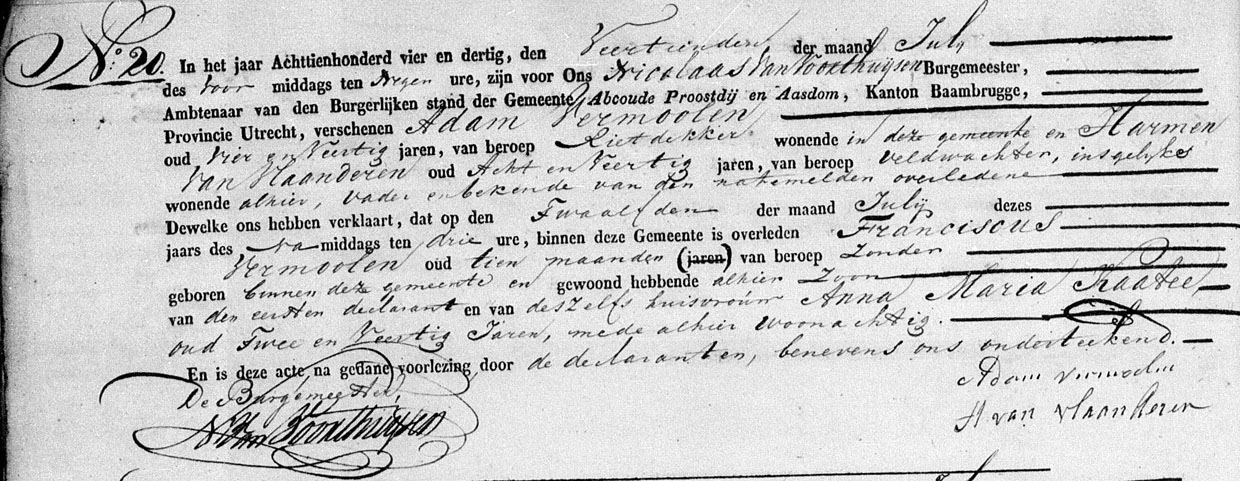 No. 20. In het jaar Achttienhonderd vier en dertig, den Veertienden der maand July
des Voor middags ten Negen ure, zijn voor Ons Nicolaas Van Voorthuysen Burgemeester,
Ambtenaar van den Burgerlijken stand der Gemeente Abcoude Proostdij en Aasdom, Kanton Baambrugge,
Provincie Utrecht, verschenen Adam Vermoolen
oud Vier en Veertig jaren, van beroep Rietdekker wonende in deze gemeente en Harmen
Van Vlaanderen oud Acht en Veertig jaren, van beroep Veldwachter, insgelyks
wonende alhier, vader en bekende van den natemelden overledene
Dewelke ons hebben verklaart, dat op den Twaalfden der maand July dezes
jaars des na middags ten drie ure, binnen deze Gemeente is overleden Franciscus
Vermoolen oud tien maanden (jaren) van beroep Zonder
geboren binnen deze gemeente en gewoond hebbende alhier Zoon
van den eersten declarant en van deszelfs huisvrouw Anna Maria Kaatee
oud Twee en Veertig Jaren, mede alhier woonachtig.
En is deze acte na gedane voorlezing door de declaranten, benevens ons onderteekend.
De Burgemeester,
N Van Voorthuysen
Adam Vermoolen
H van Vlaanderen